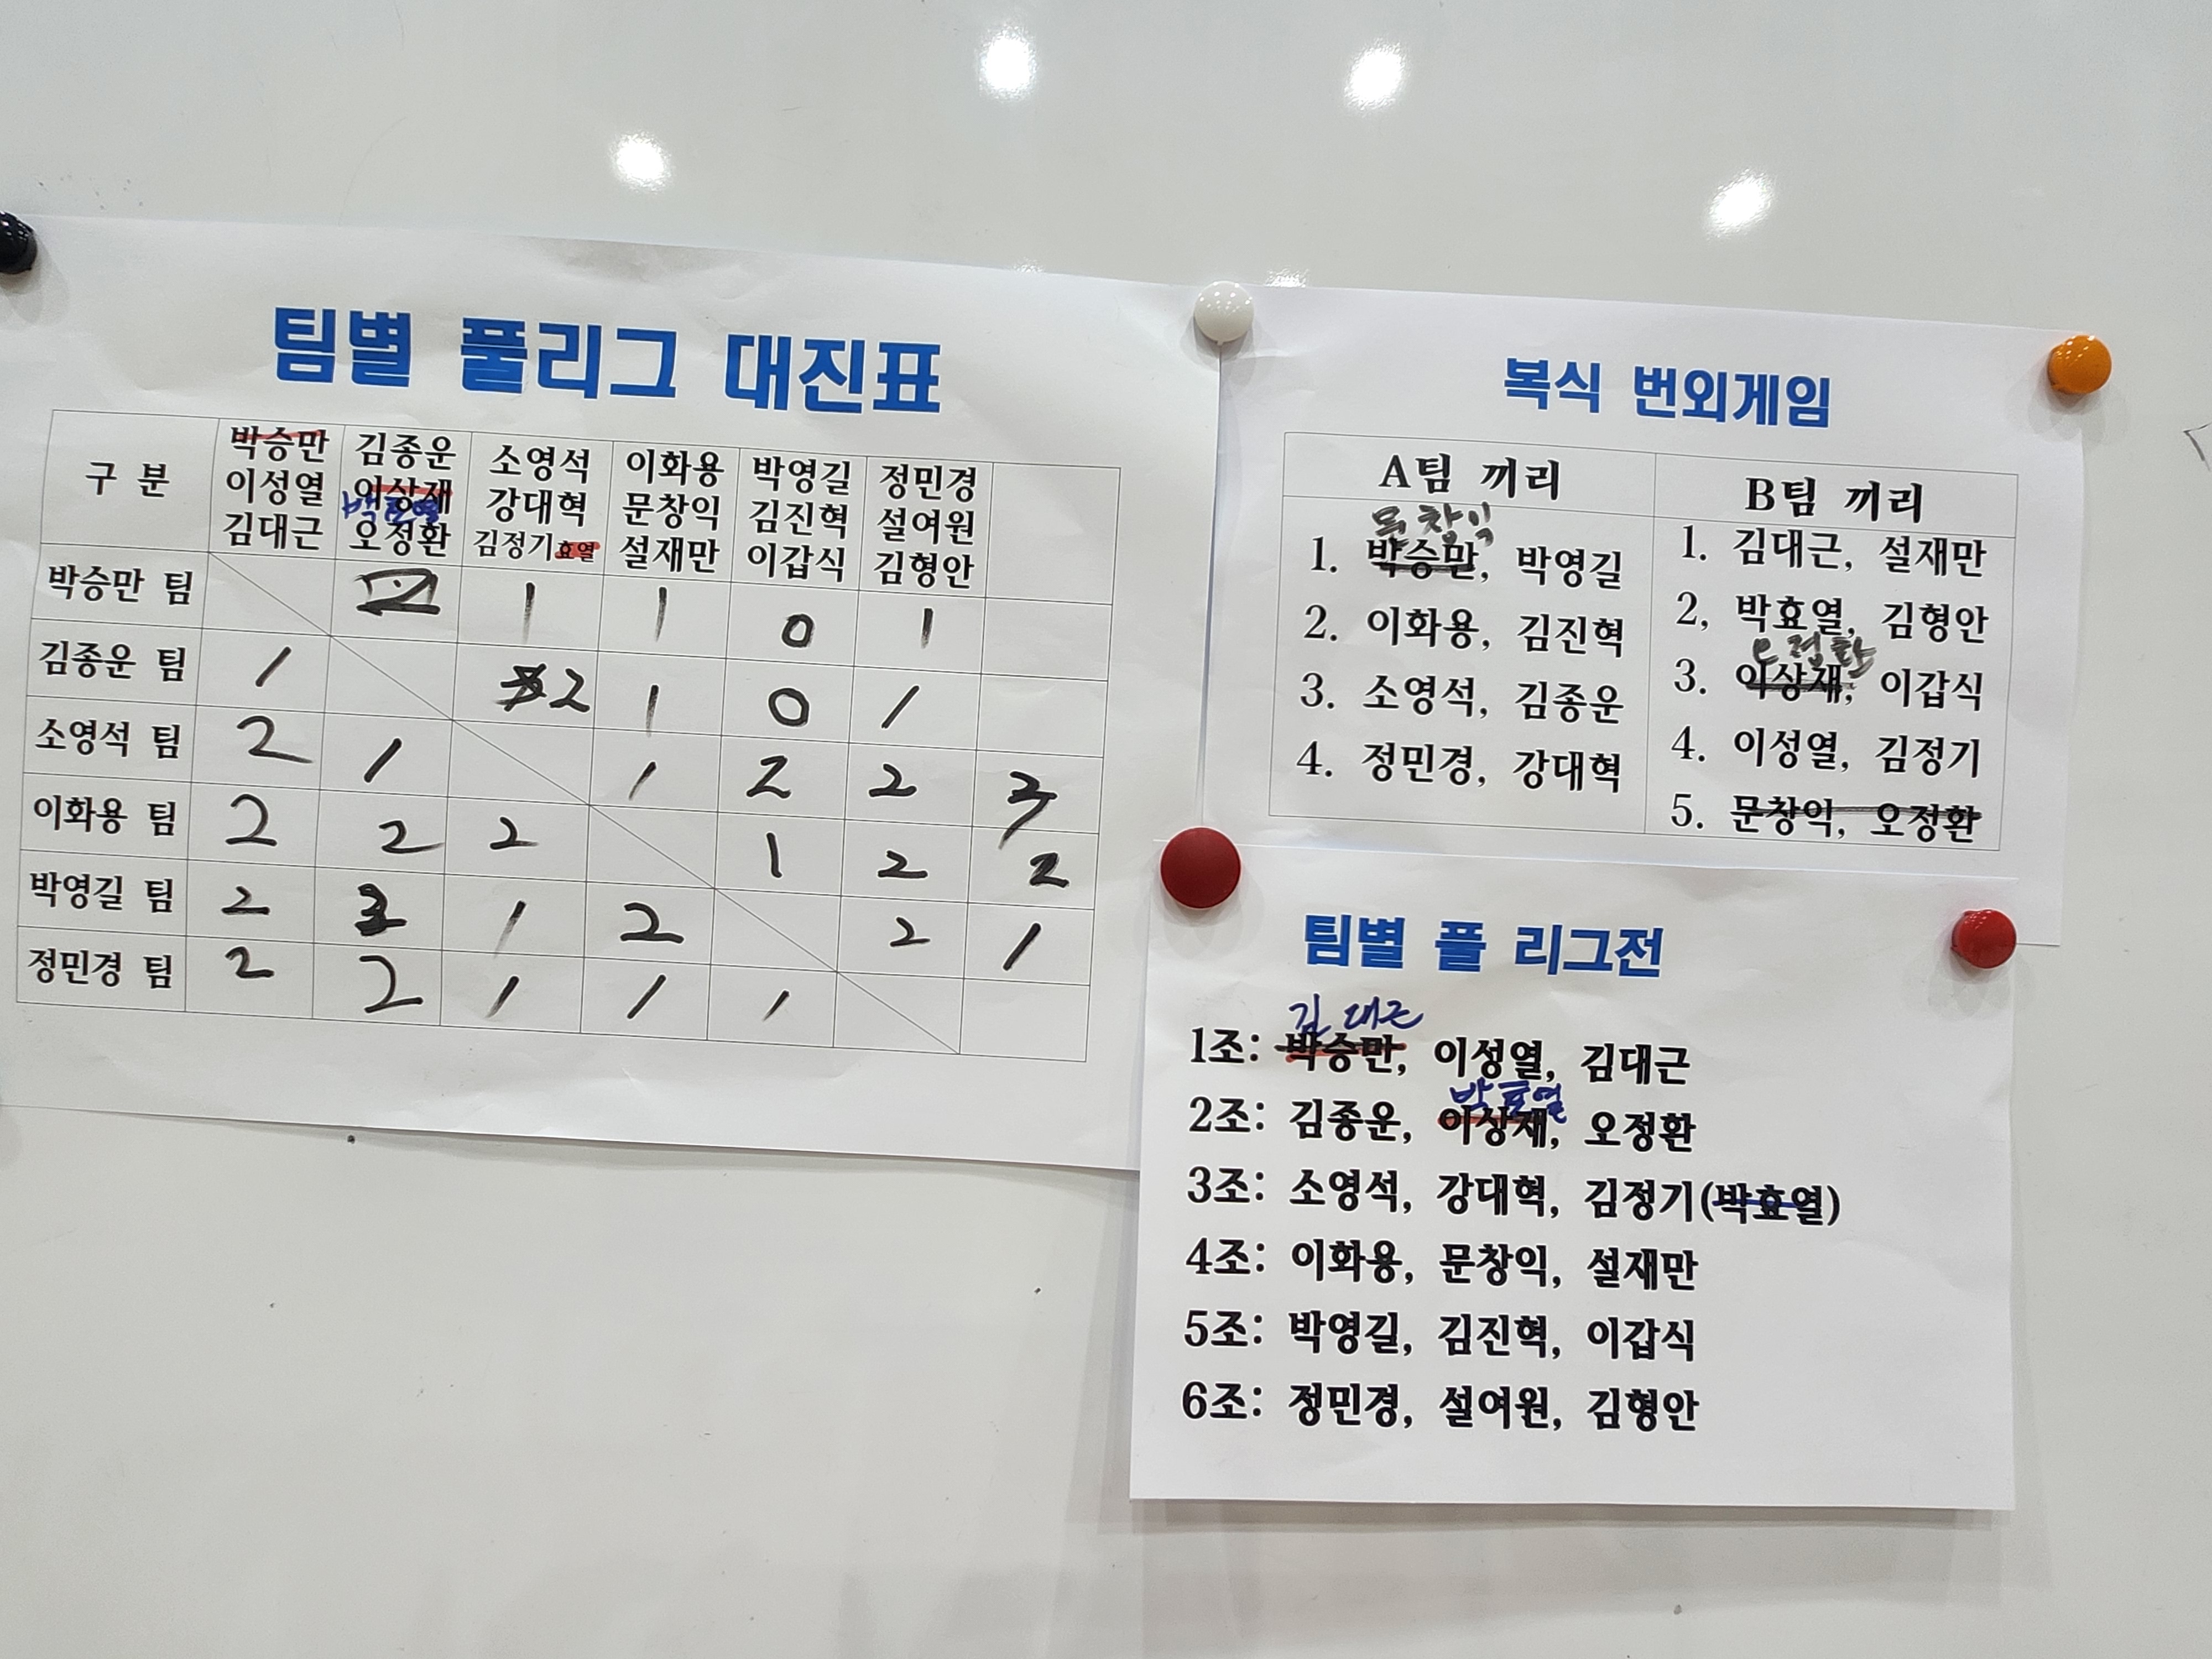 팀별 풀리그 대진표
구 분 박승만 김종운 소영석 이화용 박영길 정민경
이성열 이상재 강대혁 문창익 김진혁 설여원
박효열
김대근 오정환 김정기효열 설재만 이갑식 김형안
박승만 팀 2 1 1 0 1
김종운 팀 1 2 1 0 1
소영석 팀 2 1 1 2 2 3
이화용 팀 2 2 2 1 2 2
박영길 팀 2 3 1 2 2 1
정민경 팀 2 2 1 1 1
복식 번외게임
A팀 끼리
문창익
1. 박승만, 박영길
2. 이화용, 김진혁
3. 소영석, 김종운
4. 정민경, 강대혁
B팀 끼리
1. 김대근, 설재만
2, 박효열, 김형안
오정환
3. 이상재, 이갑식
4. 이성열, 김정기
5. 문창익, 오정환
팀별 풀 리그전
김대근
1조: 박승만, 이성열, 김대근
박효열
2조: 김종운, 이상재, 오정환
3조: 소영석, 강대혁, 김정기(박효열)
4조: 이화용, 문창익, 설재만
5조: 박영길, 김진혁, 이갑식
6조: 정민경, 설여원, 김형안